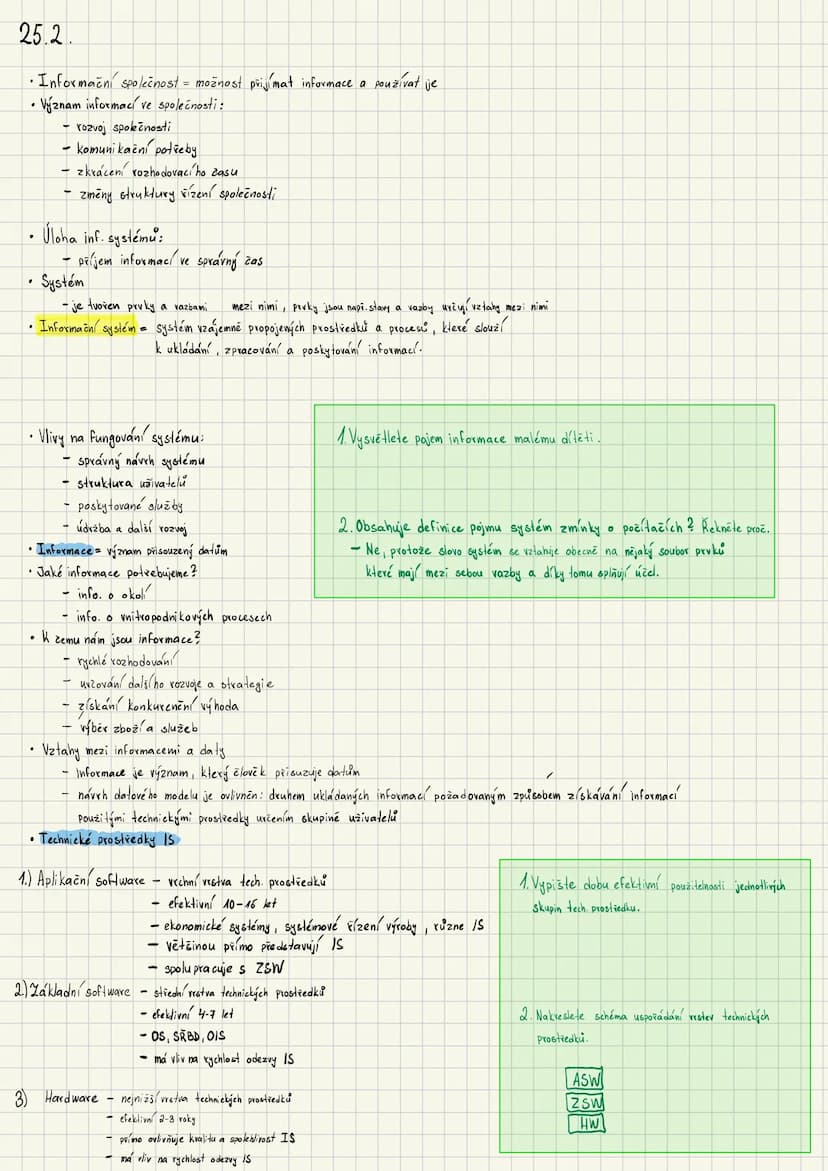 25.2.
• Informační společnost = možnost přijímat informace a používat je
• Význam informací ve společnosti:
– rozvoj společnosti
– komunikační potřeby
– zkrácení rozhodovacího času
– změny struktury řízení společnosti
• Úloha inf. systémů:
– příjem informací ve správný čas
• Systém
– je tvořen prvky a vazbami mezi nimi, prvky jsou např. stavy a vazby určují vztahy mezi nimi
• Informační systém = systém vzájemně propojených prostředků a procesů, které slouží
k ukládání, zpracování a poskytování informací.
• Vlivy na fungování systému:
– správný návrh systému
– struktura uživatelů
– poskytované služby
– údržba a další rozvoj
• Informace = význam přisouzený datům
• Jaké informace potřebujeme?
– info. o okolí
– info. o vnitropodnikových procesech
• K čemu nám jsou informace?
– rychlé rozhodování
– určování dalšího rozvoje a strategie
– získání konkurenční výhoda
– výběr zboží a služeb
• Vztahy mezi informacemi a daty
– Informace je význam, který člověk přisuzuje datům
– návrh datového modelu je ovlivněn: druhem ukládaných informací požadovaným způsobem získávání informací
použitými technickými prostředky určením skupině uživatelů
• Technické prostředky IS
1. Vysvětlete pojem informace malému dítěti.
2. Obsahuje definice pojmu systém zmínky o počítačích? Řekněte proč.
– Ne, protože slovo systém se vztahuje obecně na nějaký soubor prvků
které mají mezi sebou vazby a díky tomu splňují účel.
1.) Aplikační software – vrchní vrstva tech. prostředků
– efektivní 10-16 let
– ekonomické systémy, systémové řízení výroby, různe IS
– většinou přímo představují IS
– spolupracuje s ZSW
2.) Základní software – střední vrstva technických prostředků
– efektivní 4-7 let
– OS, SŘBD, OIS
– má vliv na rychlost odezvy IS
3) Hardware – nejnižší vrstva technických prostředků
– efektivní 2-3 roky
– přímo ovlivňuje kvalitu a spolehlivost IS
– má vliv na rychlost odezvy IS
1. Vypište dobu efektivní použitelnosti jednotlivých
skupin tech. prostředku.
2. Nakreslete schéma uspořádání vrstev technických
prostředků.
ASW
ZSW
HW